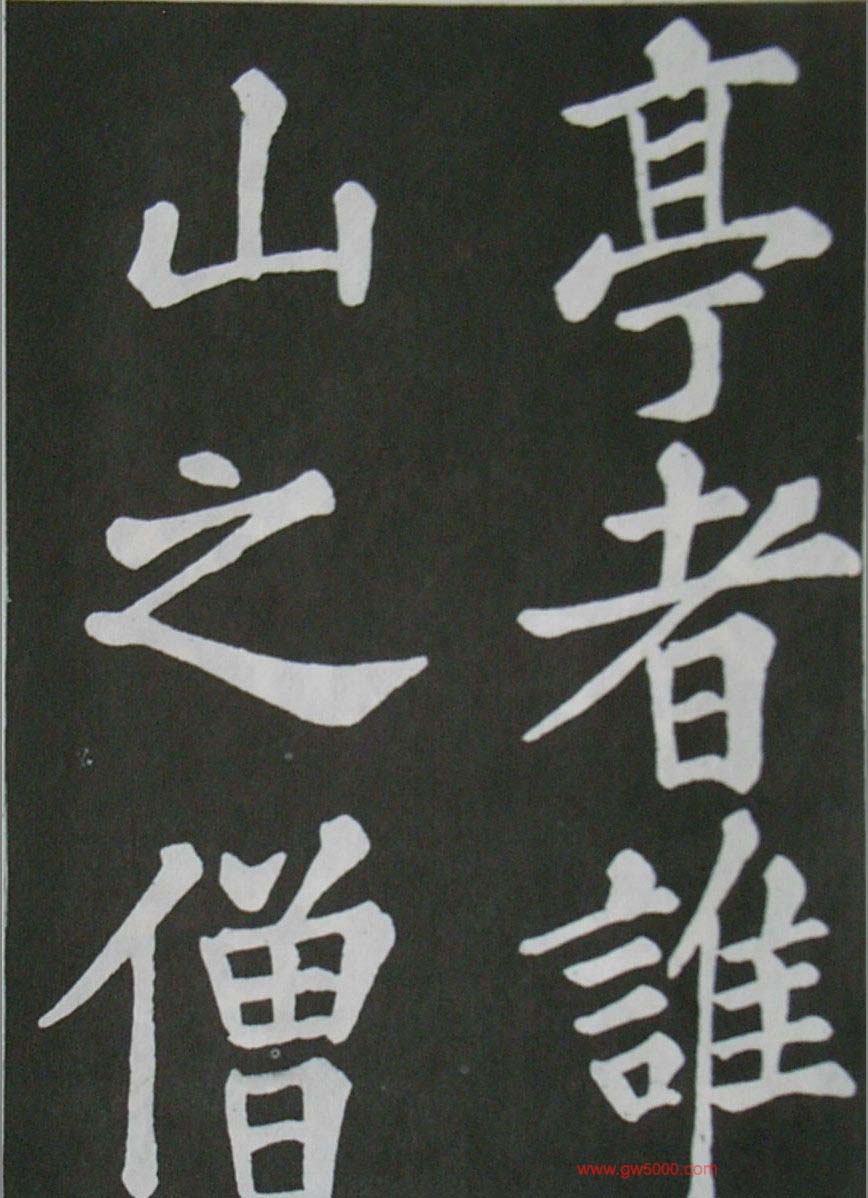 亭者誰
山之僧
www.gw5000.com